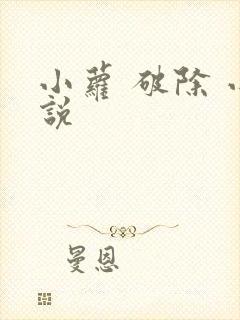 小蘿 破除
說
曼恩